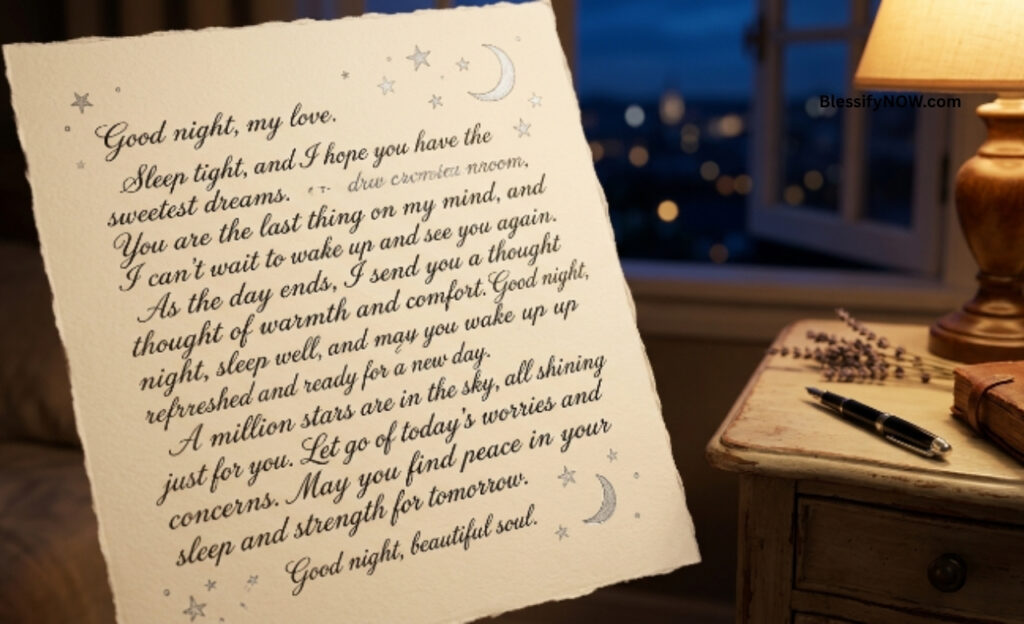 Good night, my love.
Sleep tight, and I hope you have the
sweetest dreams.
You are the last thing on my mind, and
I can't wait to wake up and see you again.
As the day ends, I send you a thought
thought of warmth and comfort. Good night,
night, sleep well, and may you wake up up
refrreshed and ready for a new day.
A million stars are in the sky, all shining
just for you. Let go of today's worries and
concerns. May you find peace in your
sleep and strength for tomorrow.
Good night, beautiful soul.
BlessifyNOW.com